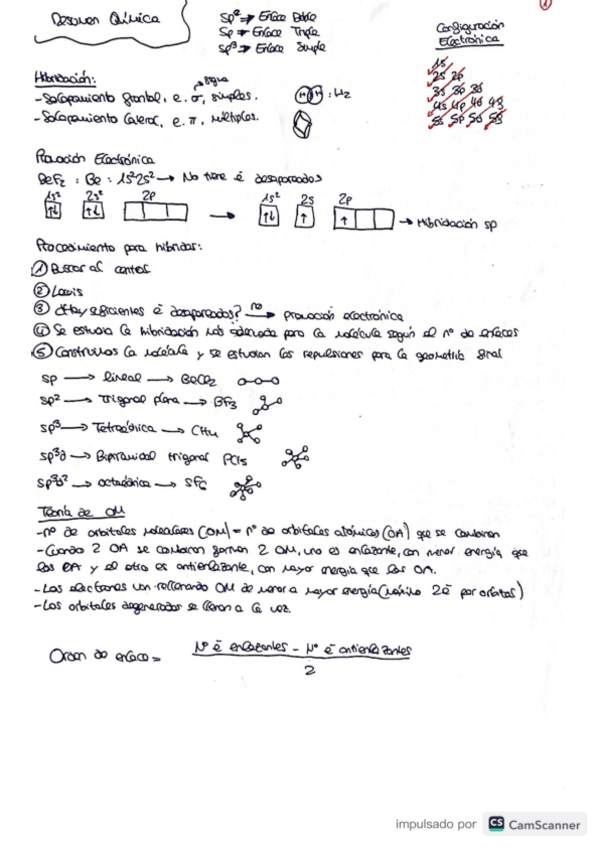 Resumen Química
Sp² → Enlace Doble
Sp → Enlace Triple
Sp³ → Enlace Simple
Configuración
Electrónica
1s
2s 2p
3s 3p 3d
4s 4p 4d 4f
5s 5p 5d 5f
Hibridación:
sigma
- Solapamiento frontal, e. σ, simples. : H₂
- Solapamiento lateral, e. π, múltiples.
Promoción Electrónica
BeF₂ : Be : 1s²2s² → No tiene ē desapareados
1s² 2s² 2p → 1s² 2s 2p → Hibridación sp
Procedimiento para híbridos:
① Buscar át central
② Lewis
③ ¿Hay suficientes ē desapareados? no → promoción electrónica
④ Se estudia la hibridación más adecuada para la molécula según el nº de enlaces
⑤ Construimos la molécula y se estudian las repulsiones para la geometría final
sp → lineal → BeCl₂
sp² → Trigonal plana → BF₃
sp³ → Tetraédrica → CH₄
sp³d → Bipiramidal trigonal PCl₅
sp³d² → octaédrica → SF₆
Teoría de OM
- nº de orbitales moleculares (OM) = nº de orbitales atómicos (OA) que se combinan
- Cuando 2 OA se combinan forman 2 OM, uno es enlazante, con menor energía que
los OA y el otro es antienlazante, con mayor energía que los OA.
- Los electrones van rellenando OM de menor a mayor energía (máximo 2ē por orbital)
- Los orbitales degenerados se llenan a la vez.
Orden de enlace = Nº ē enlazantes - Nº ē antienlazantes
2
impulsado por CS CamScanner